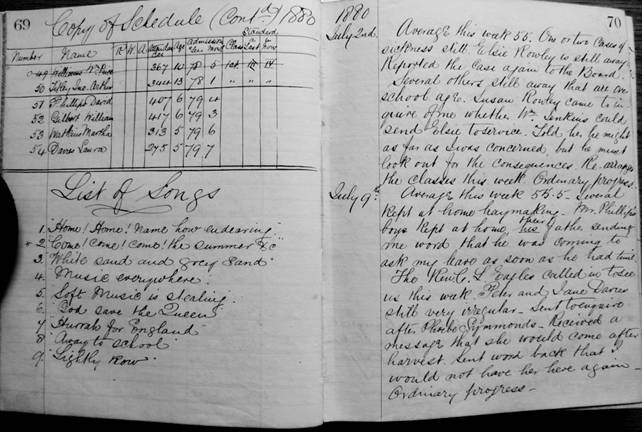 69
Copy of Schedule (Contd) 1880
Standard
Number Name R W A Attendances Age Admission Class
49 Williams Wm 367 10 78 5 1st III IV
50 Tilley Jno. Arthur 344 13 78 1 " " "
51 Phillips David 407 6 79 4
52 Gilbert William 417 6 79 3
53 Watkins Martha 313 5 79 6
54 Davies Laura 275 5 79 7
List of Songs
1 "Home! Home! Name how endearing"
2 "Come! Come! Come! the summer &c"
3 "White sand and grey sand"
4 "Music everywhere"
5 "Soft Music is stealing"
6 "God save the Queen"
7 "Hurrah for England"
8 "Away to school"
9 "Lightly Row"
1880 70
July 2nd. Average this week 55. One or two cases of
sickness still. Elsie Rowley is still away.
Reported the case again to the Board.
Several others still away that are on
school age. Susan Rowley came to in
quire of me whether Wm. Jenkins could
send Elsie to service. Told her he might
as far as I was concerned but he must
look out for the consequences. Re-arranged
the classes this week. Ordinary progress.
July 9th. Average this week 55.5. Several
kept at home haymaking. Mr. Phillips'
boys kept at home, their father sending
me word that he was coming to
ask my leave as soon as he had time.
The Rev. C. L. Eagles called in to see
us this week. Peter and Jane Davies
still very irregular. Sent to enquire
after Phoebe Symmonds. Received a
message that she would come after
harvest. Sent word back that I
would not have her here again.
Ordinary progress.